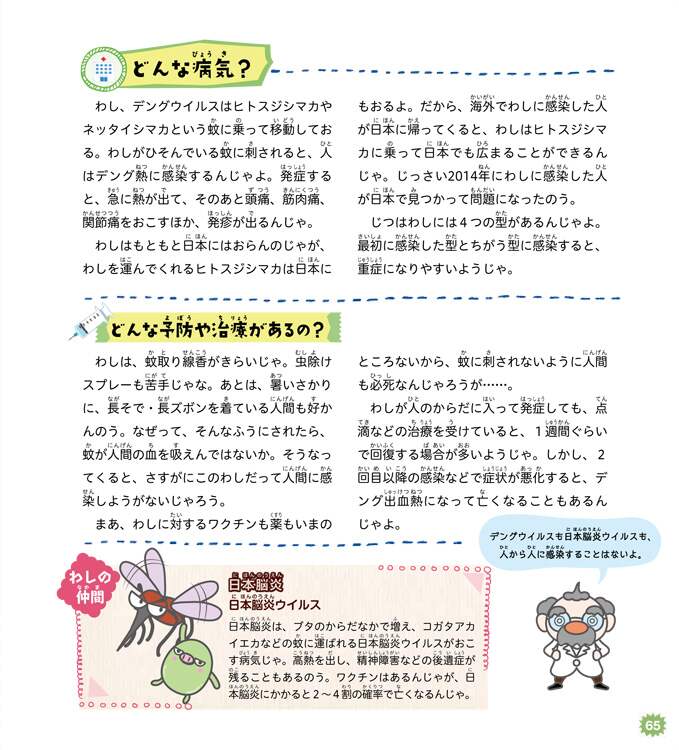 どんな病気？
わし、デングウイルスはヒトスジシマカや
ネッタイシマカという蚊に乗って移動してお
る。わしがひそんでいる蚊に刺されると、人
はデング熱に感染するんじゃよ。発症する
と、急に熱が出て、そのあと頭痛、筋肉痛、
関節痛をおこすほか、発疹が出るんじゃ。
わしはもともと日本にはおらんのじゃが、
わしを運んでくれるヒトスジシマカは日本に
もおるよ。だから、海外でわしに感染した人
が日本に帰ってくると、わしはヒトスジシマ
カに乗って日本でも広まることができるん
じゃ。じっさい2014年にわしに感染した人
が日本で見つかって問題になったのう。
じつはわしには４つの型があるんじゃよ。
最初に感染した型とちがう型に感染すると、
重症になりやすいようじゃ。
どんな予防や治療があるの？
わしは、蚊取り線香がきらいじゃ。虫除け
スプレーも苦手じゃな。あとは、暑いさかり
に、長そで・長ズボンを着ている人間も好か
んのう。なぜって、そんなふうにされたら、
蚊が人間の血を吸えんではないか。そうなっ
てくると、さすがにこのわしだって人間に感
染しようがないじゃろう。
まあ、わしに対するワクチンも薬もいまの
ところないから、蚊に刺されないように人間
も必死なんじゃろうが……。
わしが人のからだに入って発症しても、点
滴などの治療を受けていると、１週間ぐらい
で回復する場合が多いようじゃ。しかし、２
回目以降の感染などで症状が悪化すると、デ
ング出血熱になって亡くなることもあるん
じゃよ。
デングウイルスも日本脳炎ウイルスも、
人から人に感染することはないよ。
わしの
仲間
日本脳炎
日本脳炎ウイルス
日本脳炎は、ブタのからだなかで増え、コガタアカ
イエカなどの蚊に運ばれる日本脳炎ウイルスがおこ
す病気じゃ。高熱を出し、精神障害などの後遺症が
残ることもあるのう。ワクチンはあるんじゃが、日
本脳炎にかかると２～４割の確率で亡くなるんじゃ。
65